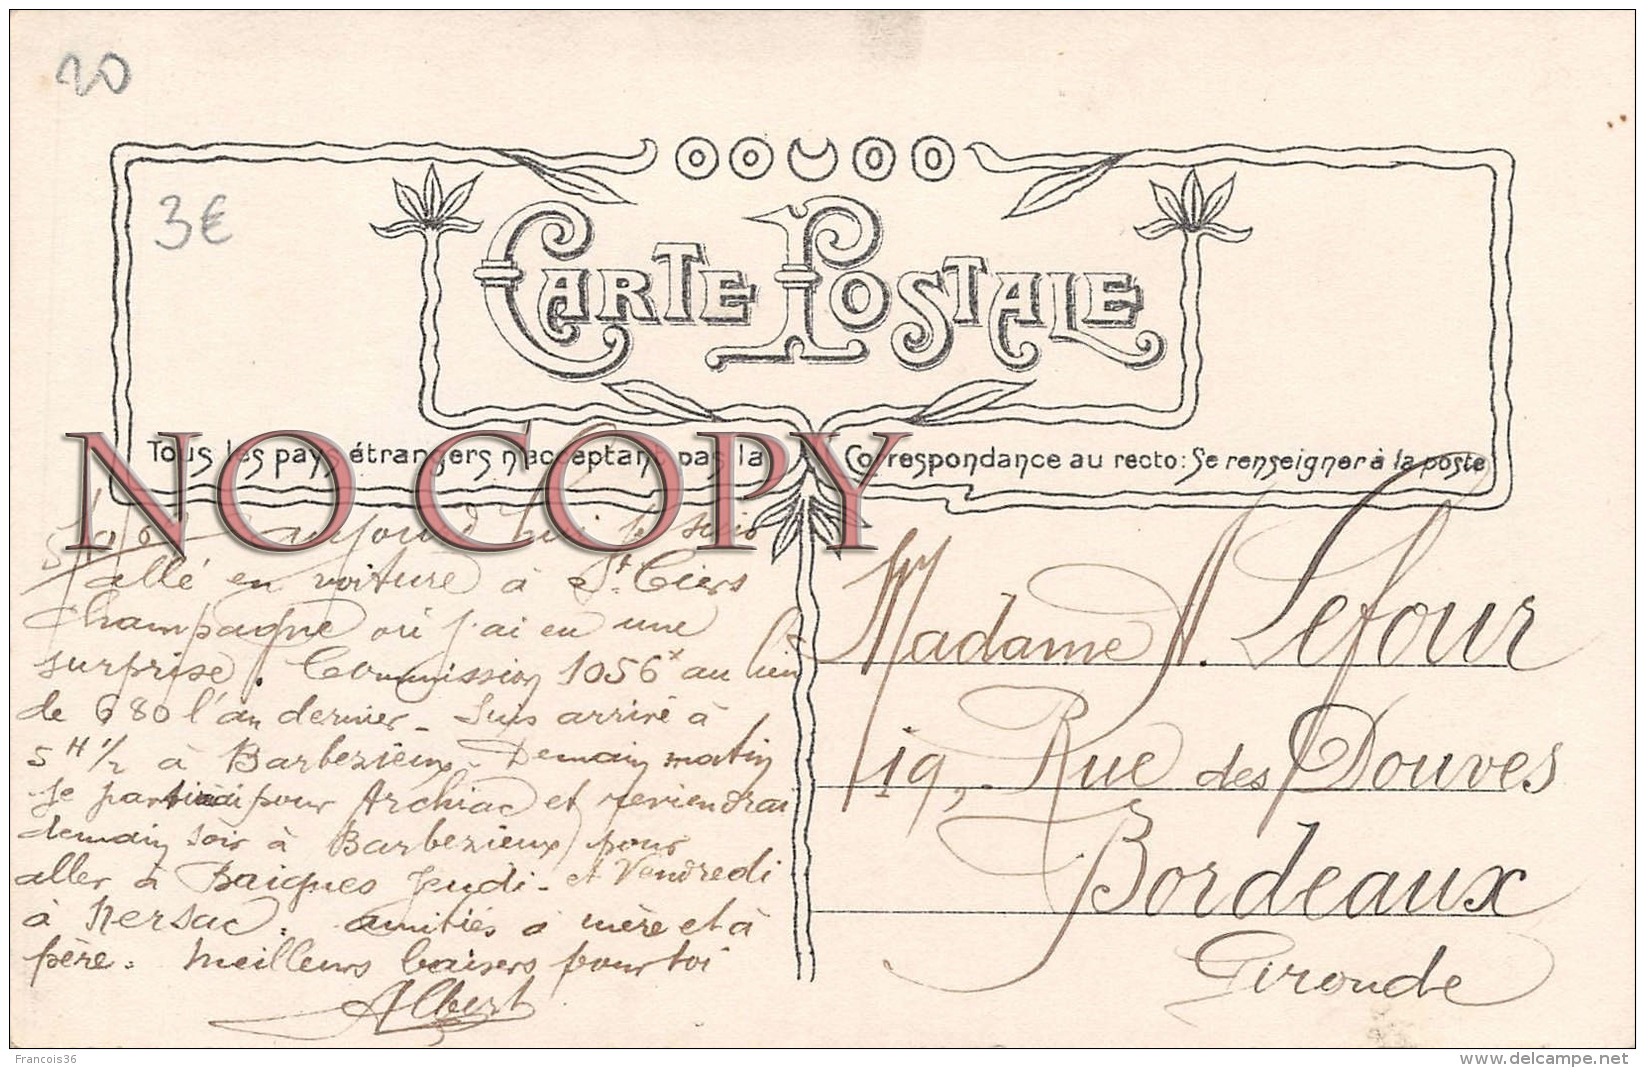 20
3€
CARTE POSTALE
Tous les pays étrangers n'acceptant pas la Correspondance au recto: Se renseigner à la poste
NO COPY
aujourd'hui je suis
allé en voiture à St. Ciers
Champagne où j'ai eu une
surprise. Commission 1056x au lieu
de 680 l'an dernier - Suis arrivé à
5 H 1/2 à Barbezieux - Demain matin
je partirai pour Archiac et reviendrai
demain soir à Barbezieux pour
aller à Baignes Jeudi - et Vendredi
à Nersac. amitiés à mère et à
père. Meilleurs baisers pour toi
Albert
Madame A. Lefour
19, Rue des Douves
Bordeaux
Gironde
Francois36
www.delcampe.net